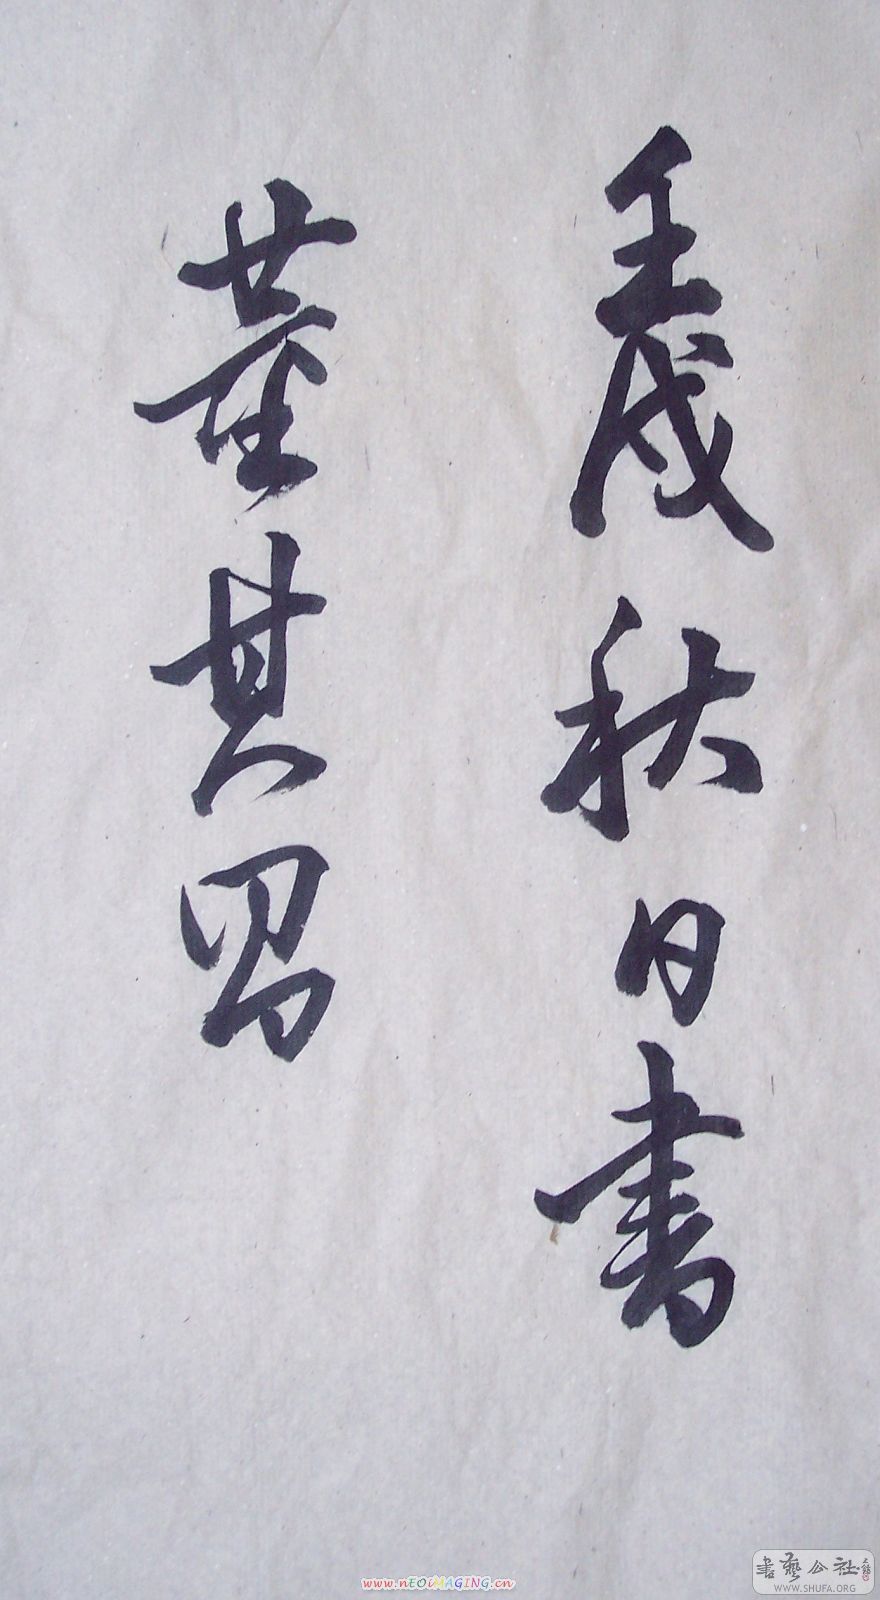 壬戌秋日書
董其昌
www.nEOiMAGING.cn
書藝公社
WWW.SHUFA.ORG